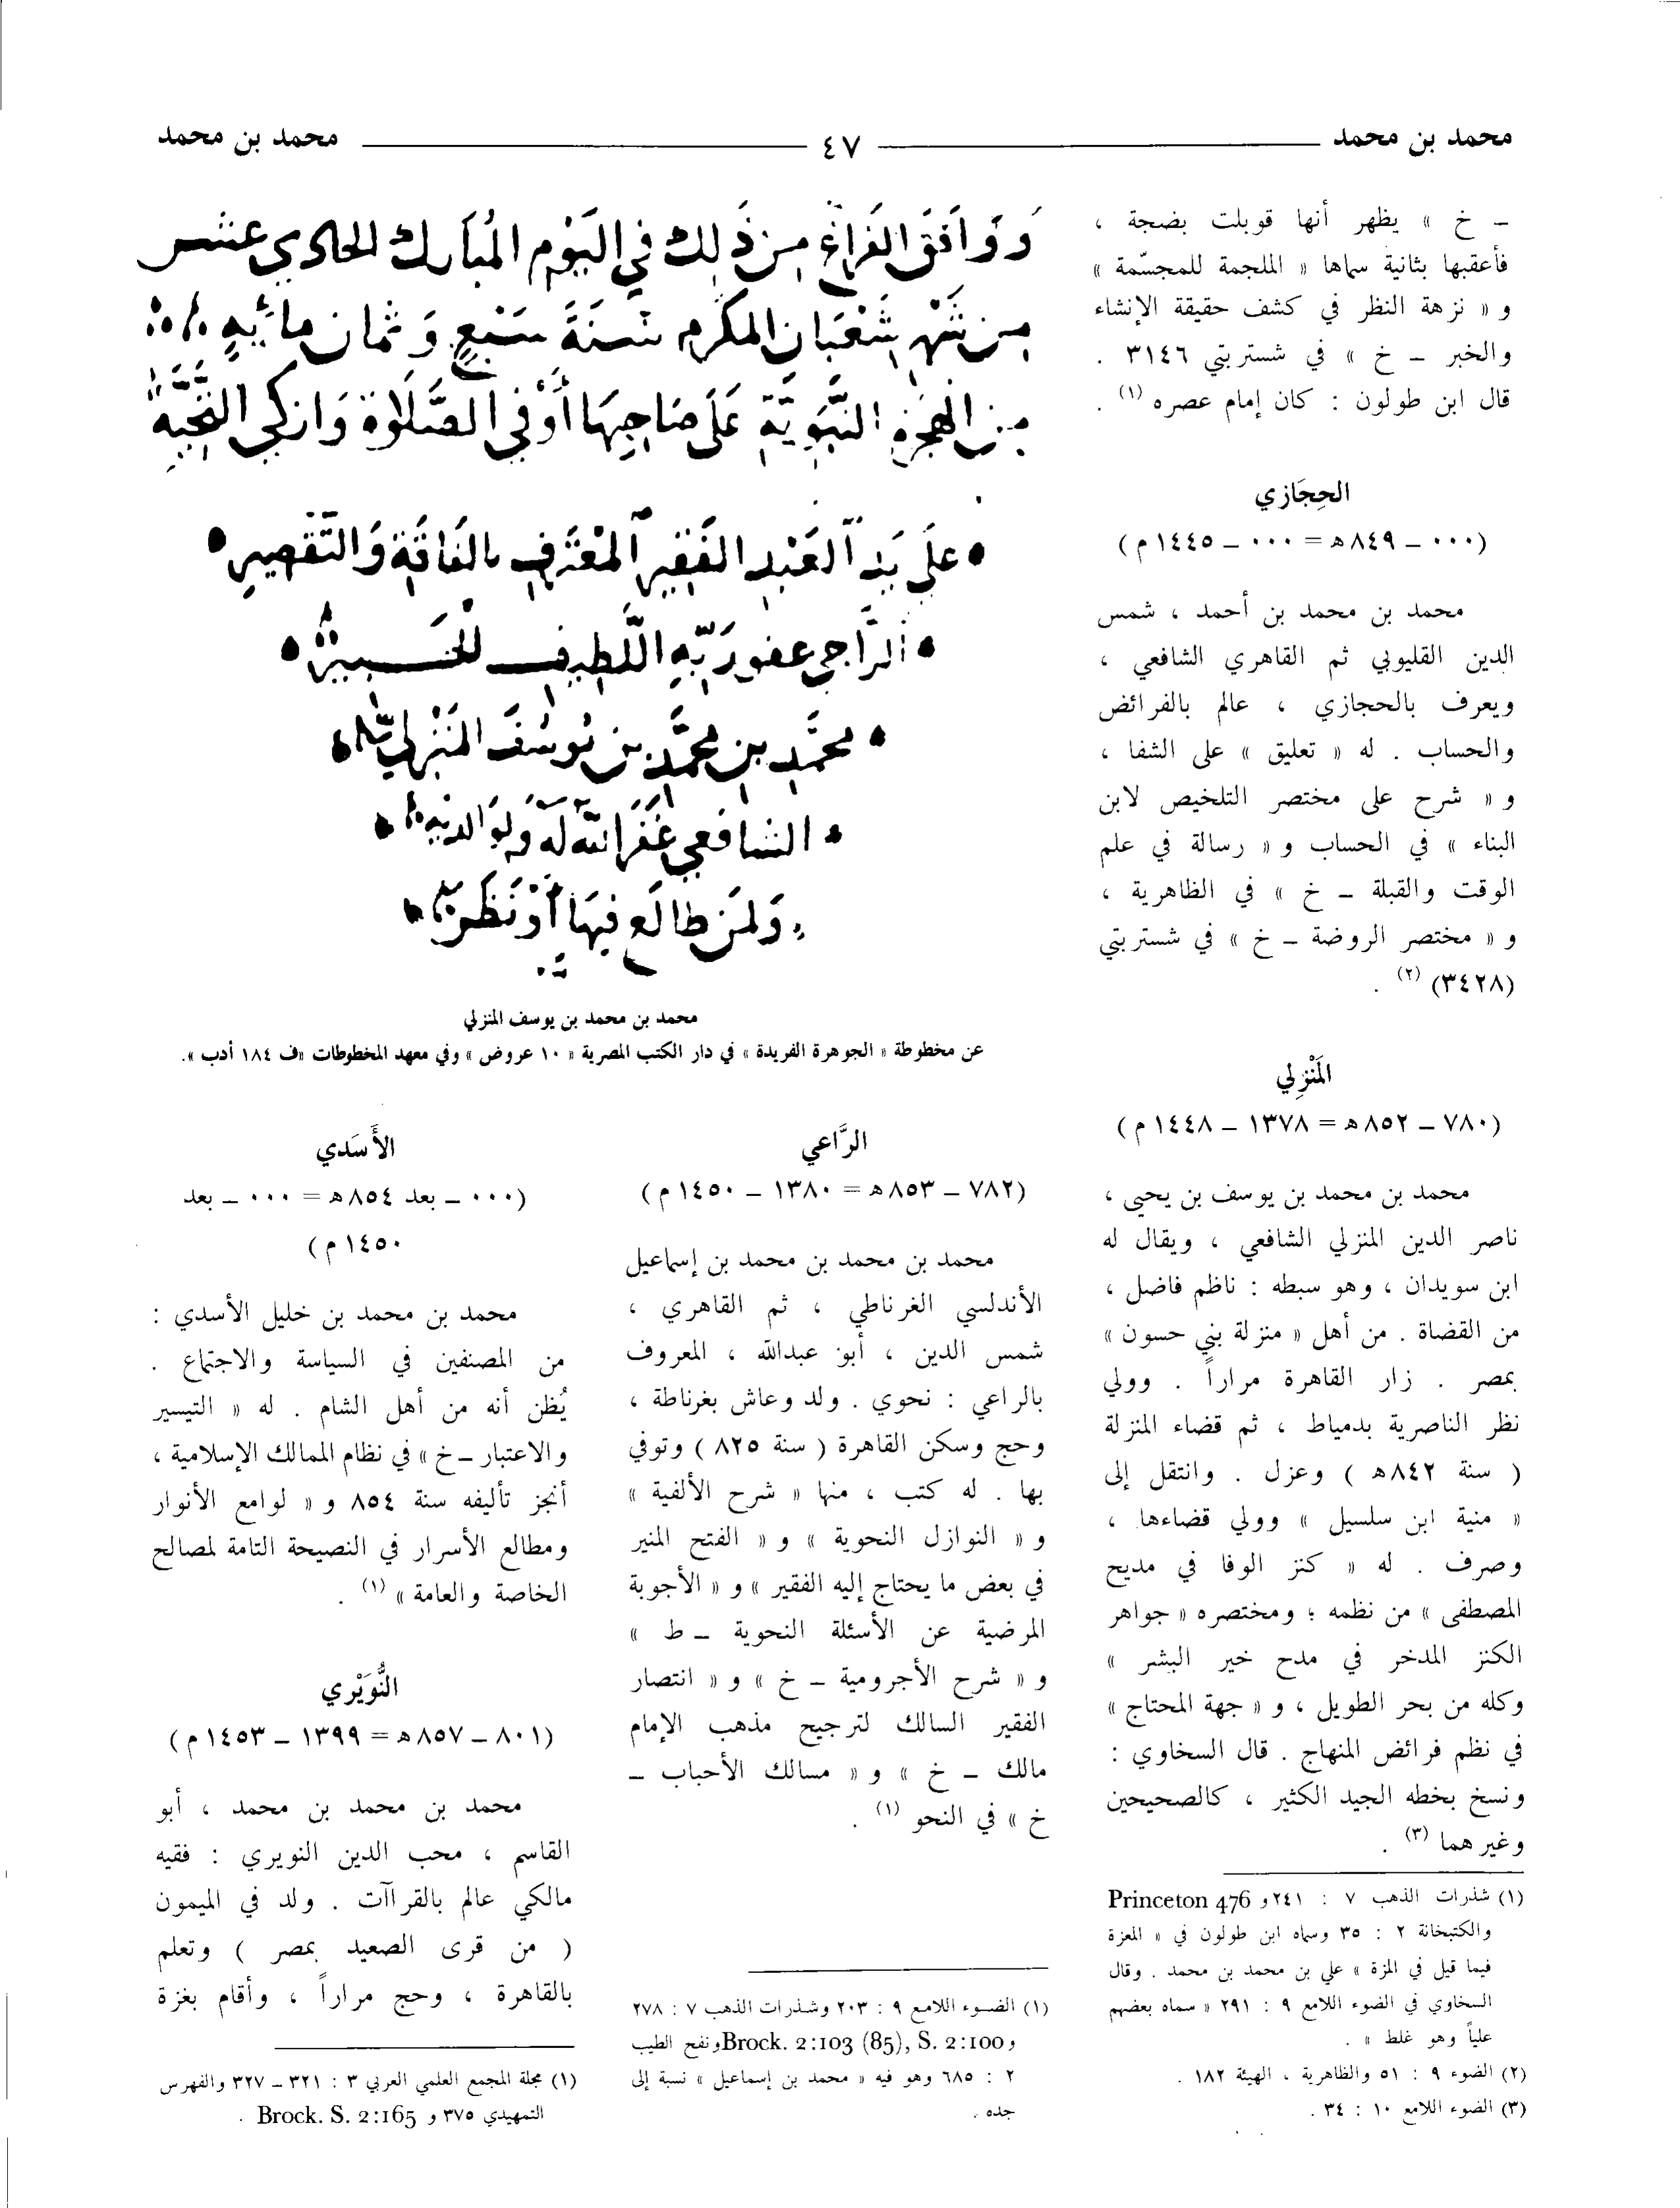 محمد بن محمد ٤٧ محمد بن محمد
ـ خ » يظهر أنها قوبلت بضجة ،
فأعقبها بثانية سماها « الملجمة للمجسّمة »
و « نزهة النظر في كشف حقيقة الإنشاء
والخبر ـ خ » في شستربتي ٣١٤٦ .
قال ابن طولون : كان إمام عصره (١) .
الحِجَازي
(٠٠٠ ـ ٨٤٩ هـ = ٠٠٠ ـ ١٤٤٥ م)
محمد بن محمد بن أحمد ، شمس
الدين القليوبي ثم القاهري الشافعي ،
ويعرف بالحجازي ، عالم بالفرائض
والحساب . له « تعليق » على الشفا ،
و « شرح على مختصر التلخيص لابن
البناء » في الحساب و « رسالة في علم
الوقت والقبلة ـ خ » في الظاهرية ،
و « مختصر الروضة ـ خ » في شستربتي
(٣٤٢٨) (٢) .
المَنْزِلي
(٧٨٠ ـ ٨٥٢ هـ = ١٣٧٨ ـ ١٤٤٨ م)
محمد بن محمد بن يوسف بن يحيى ،
ناصر الدين المنزلي الشافعي ، ويقال له
ابن سويدان ، وهو سبطه : ناظم فاضل ،
من القضاة . من أهل « منزلة بني حسون »
بمصر . زار القاهرة مراراً . وولي
نظر الناصرية بدمياط ، ثم قضاء المنزلة
( سنة ٨٤٢ هـ ) وعزل . وانتقل إلى
« منية ابن سلسيل » وولي قضاءها ،
وصرف . له « كنز الوفا في مديح
المصطفى » من نظمه ؛ ومختصره « جواهر
الكنز المدخر في مدح خير البشر »
وكله من بحر الطويل ، و « جهة المحتاج »
في نظم فرائض المنهاج . قال السخاوي :
ونسخ بخطه الجيد الكثير ، كالصحيحين
وغيرهما (٣) .
(١) شذرات الذهب ٧ : ٢٤١ و Princeton 476
والكتبخانة ٢ : ٣٥ وسماه ابن طولون في « المعزة
فيما قيل في المزة » علي بن محمد بن محمد . وقال
السخاوي في الضوء اللامع ٩ : ٢٩١ « سماه بعضهم
علياً وهو غلط » .
(٢) الضوء ٩ : ٥١ والظاهرية ، الهيئة ١٨٢ .
(٣) الضوء اللامع ١٠ : ٣٤ .
وَوَافَقَ الفَرَاغ مِن ذَلِكَ في اليَوْم المُبَارك الحادي عشر
من شهر شَعْبَان المكرم سَنَةَ سَبْع وَثمان مائية
من الهجرة النَّبَويَّة عَلَى صَاحِبهَا أَوْفى الصَّلَاوة وَازكى التَّحِيَّة
عَلَى يَد العَبْد الفَقِير المعْترف بالفَاقة وَالتَّقصير
الرَّاجي عفو رَبِّه اللَّطيف الخبير
محمَّد بن محمَّد بن يُوسُف المَنْزلي
الشافعي غَفَر الله لَه وَلوَالديه
وَلمَن طالَع فيهَا أَوْ نَظَر
محمد بن محمد بن يوسف المنزلي
عن مخطوطة « الجوهرة الفريدة » في دار الكتب المصرية « ١٠ عروض » وفي معهد المخطوطات «ف ١٨٤ أدب ».
الرَّاعي
(٧٨٢ ـ ٨٥٣ هـ = ١٣٨٠ ـ ١٤٥٠ م)
محمد بن محمد بن محمد بن إسماعيل
الأندلسي الغرناطي ، ثم القاهري ،
شمس الدين ، أبو عبدالله ، المعروف
بالراعي : نحوي . ولد وعاش بغرناطة ،
وحج وسكن القاهرة ( سنة ٨٢٥ ) وتوفي
بها . له كتب ، منها « شرح الألفية »
و « النوازل النحوية » و « الفتح المنير
في بعض ما يحتاج إليه الفقير » و « الأجوبة
المرضية عن الأسئلة النحوية ـ ط »
و « شرح الأجرومية ـ خ » و « انتصار
الفقير السالك لترجيح مذهب الإمام
مالك ـ خ » و « مسالك الأحباب ـ
خ » في النحو (١) .
(١) الضوء اللامع ٩ : ٢٠٣ وشذرات الذهب ٧ : ٢٧٨
و Brock. 2:103 (85), S. 2:100 ونفح الطيب
٢ : ٦٨٥ وهو فيه « محمد بن إسماعيل » نسبة إلى
جده .
الأَسَدي
(٠٠٠ ـ بعد ٨٥٤ هـ = ٠٠٠ ـ بعد
١٤٥٠ م)
محمد بن محمد بن خليل الأسدي :
من المصنفين في السياسة والاجتماع .
يُظن أنه من أهل الشام . له « التيسير
والاعتبار ـ خ » في نظام الممالك الإسلامية ،
أنجز تأليفه سنة ٨٥٤ و « لوامع الأنوار
ومطالع الأسرار في النصيحة التامة لمصالح
الخاصة والعامة » (١) .
النُّوَيْري
(٨٠١ ـ ٨٥٧ هـ = ١٣٩٩ ـ ١٤٥٣ م)
محمد بن محمد بن محمد ، أبو
القاسم ، محب الدين النويري : فقيه
مالكي عالم بالقراآت . ولد في الميمون
( من قرى الصعيد بمصر ) وتعلم
بالقاهرة ، وحج مراراً ، وأقام بغزة
(١) مجلة المجمع العلمي العربي ٣ : ٣٢١ ـ ٣٢٧ والفهرس
التمهيدي ٣٧٥ و Brock. S. 2:165 .